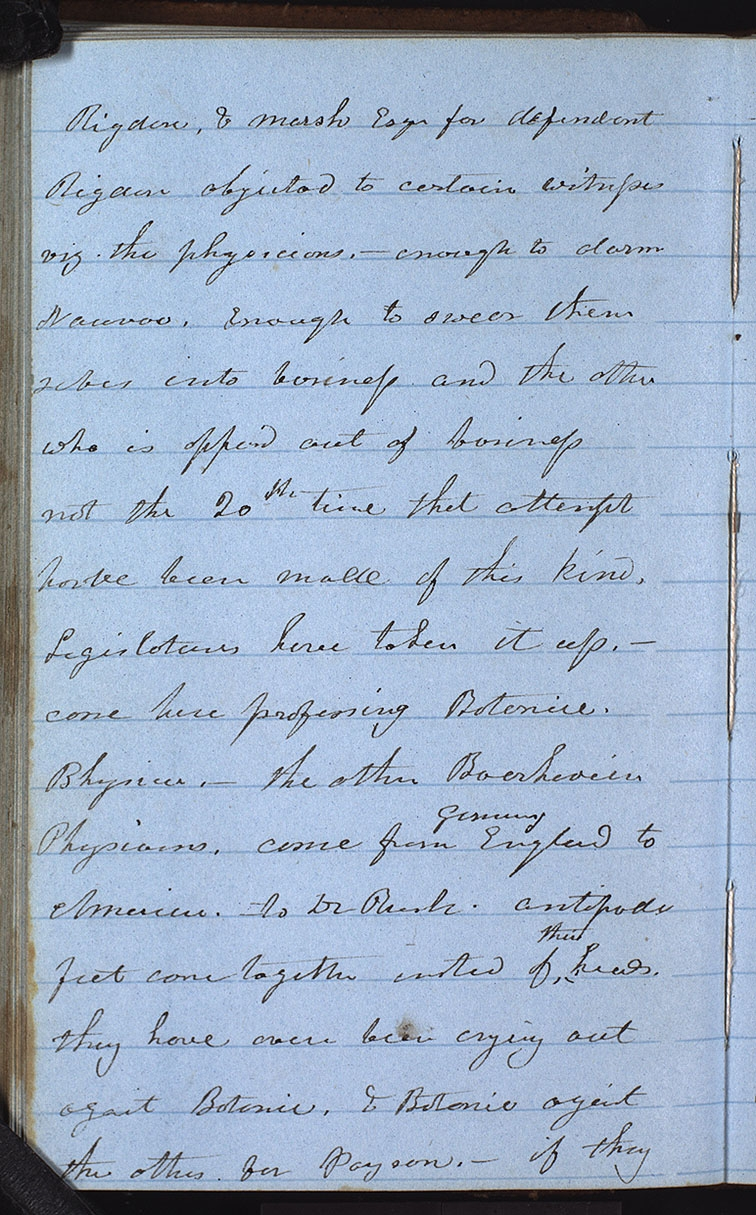 Rigdon, & Marsh Esqr for defendant
Rigdon objected to certain witness
viz. the physicians.— enough to darm
Nauvoo. Enough to swear them
selves into business and the other
who is oppsd out of business
not the 20th time that attempt
have been made of this kind,
Legislatures have taken it up.—
come here professing Botanice.
Physicn.— the other Boerhavein
Physicians. come from Germany England to
America. to Dr Rush. antipode
feet come togethe insted of, their heads.
they have ever been crying out
agait Botanic. & Botanic agait
the other for Poyson.— if they